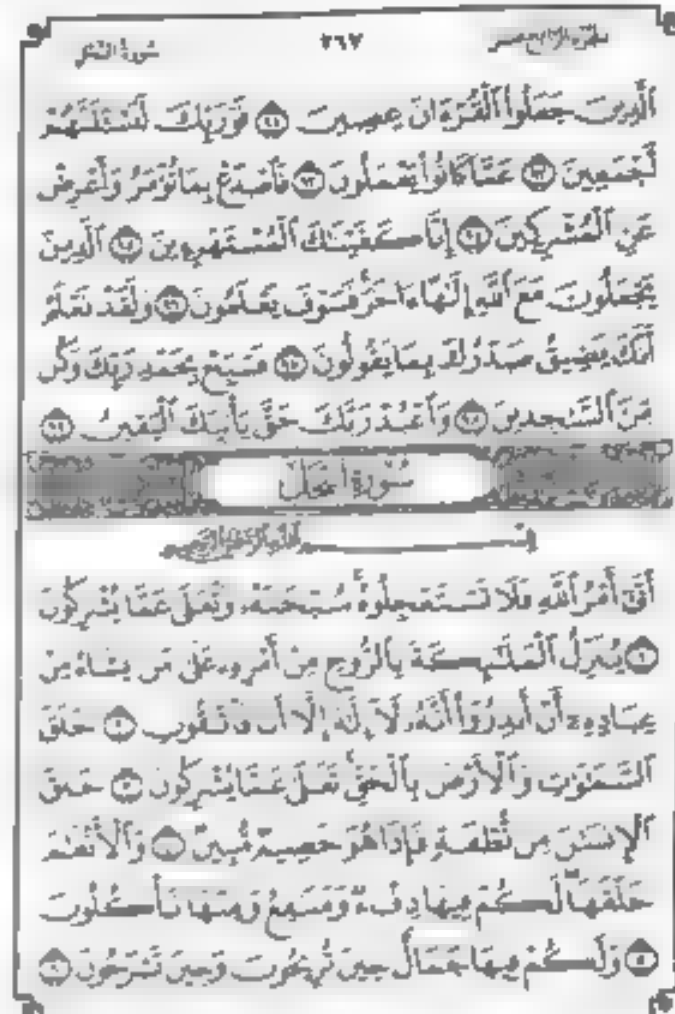 سُورَةُ النَّحْلِ ٢٦٧ الجُزْءُ الرَّابِعَ عَشَرَ
الَّذِينَ جَعَلُوا الْقُرْءَانَ عِضِينَ ٩١ فَوَرَبِّكَ لَنَسْـَٔلَنَّهُمْ
أَجْمَعِينَ ٩٢ عَمَّا كَانُوا يَعْمَلُونَ ٩٣ فَاصْدَعْ بِمَا تُؤْمَرُ وَأَعْرِضْ
عَنِ الْمُشْرِكِينَ ٩٤ إِنَّا كَفَيْنَاكَ الْمُسْتَهْزِءِينَ ٩٥ الَّذِينَ
يَجْعَلُونَ مَعَ اللَّهِ إِلَٰهًا ءَاخَرَ فَسَوْفَ يَعْلَمُونَ ٩٦ وَلَقَدْ نَعْلَمُ
أَنَّكَ يَضِيقُ صَدْرُكَ بِمَا يَقُولُونَ ٩٧ فَسَبِّحْ بِحَمْدِ رَبِّكَ وَكُن
مِّنَ السَّاجِدِينَ ٩٨ وَاعْبُدْ رَبَّكَ حَتَّىٰ يَأْتِيَكَ الْيَقِينُ ٩٩
سُورَةُ النَّحْلِ
بِسْمِ اللَّهِ الرَّحْمَٰنِ الرَّحِيمِ
أَتَىٰ أَمْرُ اللَّهِ فَلَا تَسْتَعْجِلُوهُ سُبْحَٰنَهُ وَتَعَٰلَىٰ عَمَّا يُشْرِكُونَ
١ يُنَزِّلُ الْمَلَٰٓئِكَةَ بِالرُّوحِ مِنْ أَمْرِهِ عَلَىٰ مَن يَشَاءُ مِنْ
عِبَادِهِ أَنْ أَنذِرُوا أَنَّهُ لَا إِلَٰهَ إِلَّا أَنَا فَاتَّقُونِ ٢ خَلَقَ
السَّمَٰوَٰتِ وَالْأَرْضَ بِالْحَقِّ تَعَٰلَىٰ عَمَّا يُشْرِكُونَ ٣ خَلَقَ
الْإِنسَٰنَ مِن نُّطْفَةٍ فَإِذَا هُوَ خَصِيمٌ مُّبِينٌ ٤ وَالْأَنْعَٰمَ
خَلَقَهَا لَكُمْ فِيهَا دِفْءٌ وَمَنَٰفِعُ وَمِنْهَا تَأْكُلُونَ
٥ وَلَكُمْ فِيهَا جَمَالٌ حِينَ تُرِيحُونَ وَحِينَ تَسْرَحُونَ ٦